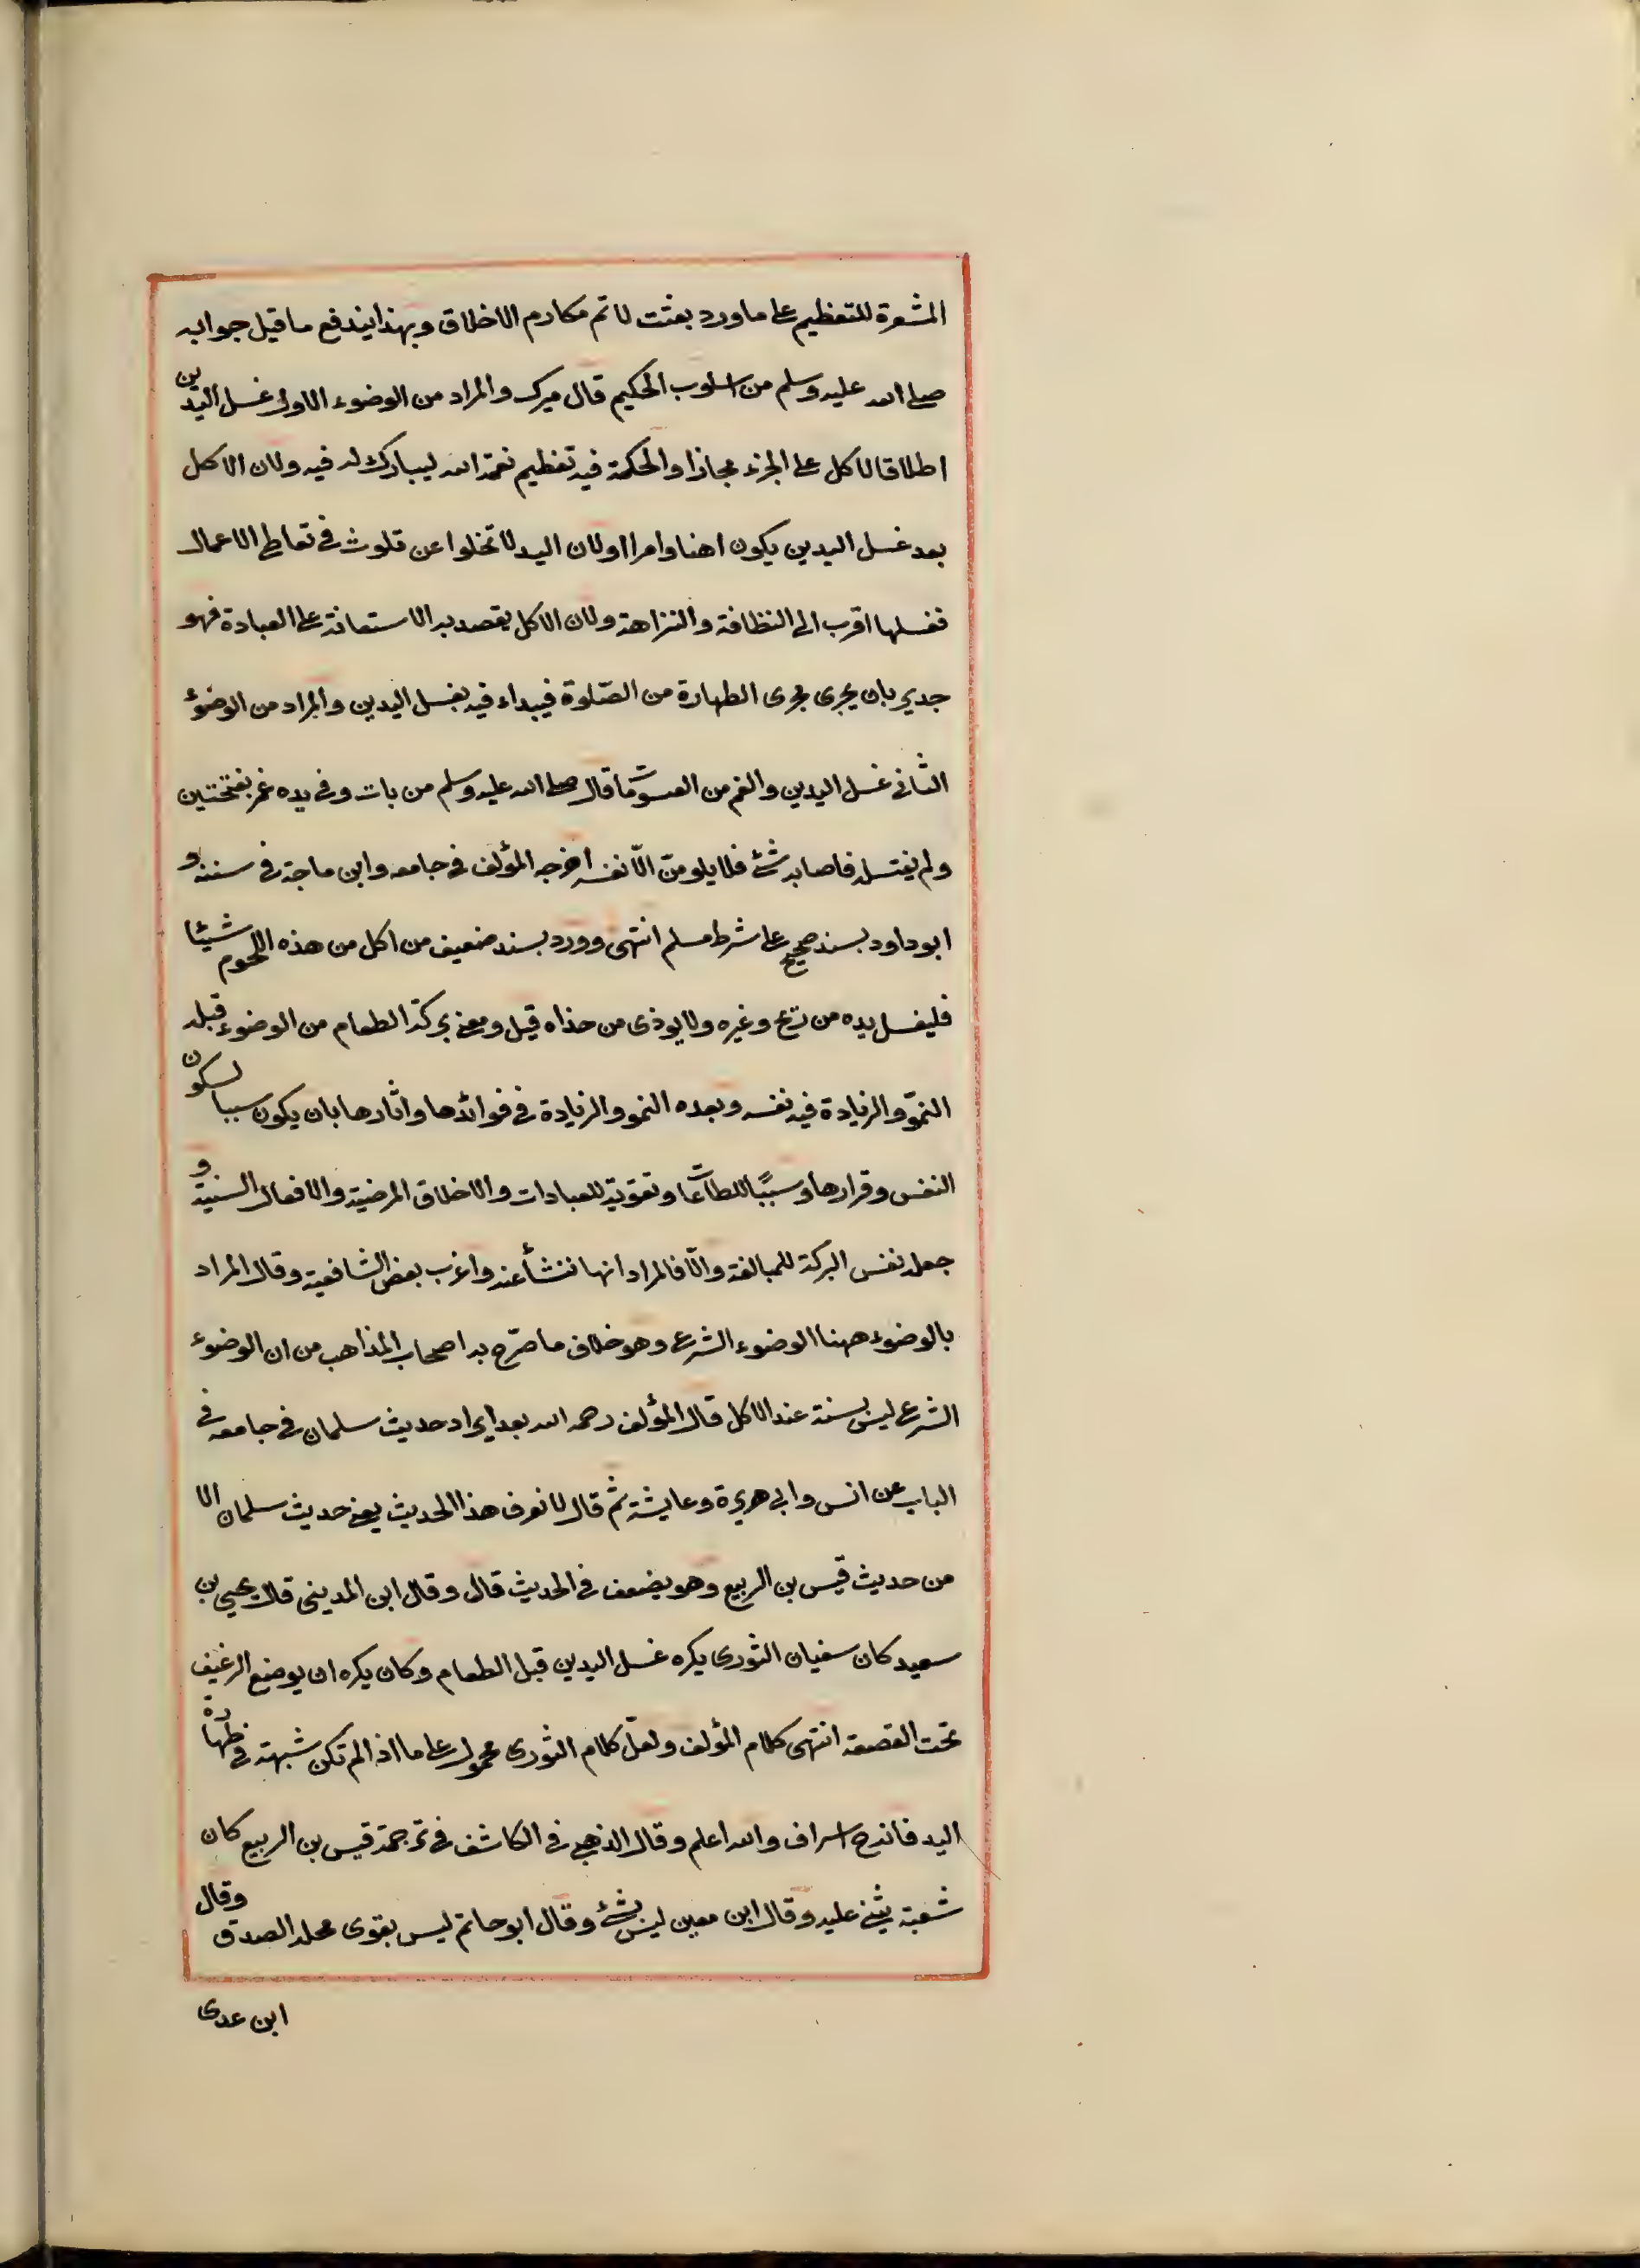 المشعرة للتعظيم على ما ورد بعثت لاتم مكارم الاخلاق وبهذا يندفع ما قيل جوابه
صلى الله عليه وسلم من اسلوب الحكيم قال ميرك والمراد من الوضوء الاول غسل اليدين
اطلاقا لاكل على الجزء مجازا والحكمة فيه تعظيم نعمة الله ليبارك له فيه ولان الاكل
بعد غسل اليدين يكون اهنا وامرا اولان اليد لا تخلوا عن تلوث في تعاطى الاعمال
فغسلها اقرب الى النظافة والنزاهة ولان الاكل يقصد به الاستعانة على العبادة فهو
جدير بان يجرى مجرى الطهارة من الصلوة فيبداء فيه بغسل اليدين والمراد من الوضوء
الثانى غسل اليدين والفم من قال صلى الله عليه وسلم من بات وفى يده غمر بفتحتين
ولم يغتسله فاصابه شئ فلا يلومن الّا نفسه اخرجه المؤلف في جامعه وابن ماجة في سننه و
ابو داود بسند صحيح على شرط مسلم انتهى وورد بسند ضعيف من اكل من هذه اللحوم شيئا
فليغسل يده من ريح وغيره ولا يوذى من حذاه قيل ومعنى بركة الطعام من الوضوء قبله
النموّ والزيادة فيه نفسه وبعده النمو والزيادة في فوائدها واثارها بان يكون سببا لسكون
النفس وقرارها وسببًا للطاعات وتقوية للعبادات والاخلاق المرضية والافعال السنية و
جعله نفس البركة للمبالغة والّا فالمراد انها تنشأ عنه واغرب بعض الشافعية وقال المراد
بالوضوء ههنا الوضوء الشرعى وهو خلاف ما صرّح به اصحاب المذاهب من ان الوضوء
الشرعى ليس بسنة عند الاكل قال المؤلف رحمه الله بعد ايراد حديث سلمان في جامعه في
الباب عن انس وابى هريرة وعايشة ثم قال لا نعرف هذا الحديث يعنى حديث سلمان الا
من حديث قيس بن الربيع وهو يضعف في الحديث قال وقال ابن المدينى قال يحيى بن
سعيد كان سفيان الثورى يكره غسل اليدين قبل الطعام وكان يكره ان يوضع الرغيف
تحت القصعة انتهى كلام المؤلف ولعلّ كلام الثورى محمول على ما اذا لم تكن شبهة في طهارة
اليد فانه ح اسراف والله اعلم وقال الذهبى في الكاشف في ترجمة قيس بن الربيع كان
شعبة يثنى عليه وقال ابن معين ليس بشئ وقال ابو حاتم ليس بقوى محله الصدق وقال
ابن عدى